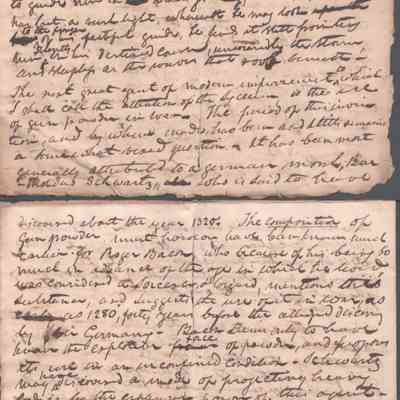 to guide
may cast, a sure light, whenever he may look
to the finger of his faithful guide, he find it still pointing
silently
him in his destined course, unerringly the storm
and sleepless as the power that roll beneath
The next great agent of modern improvement, which
I shall call the attention of the Lyceum is the use
of gun powder in war. The period of this inven
tion, and by whom made, has been and still remains
a somewhat vexed question. It has been most
generally attributed to a german monk, Bar
tholdus Schwartz, who is said to have
discovered about the year 1320. The composition of
Gun powder, must however have been known much
earlier for Roger Bacon, who because of his being so
much in advance of the age in which he lived
was considered a Sorcerer & wizard, mentions this
substance, and suggests the use of it in war, as
early as 1280, forty years before the alleged discovery
by the German. Bacon seems only to have
known the explosive force of powder, and proposes
its use in an unconfined condition. Schwartz
may have discovered a mode of projecting heavy
bodies by the expansive power of this agent.